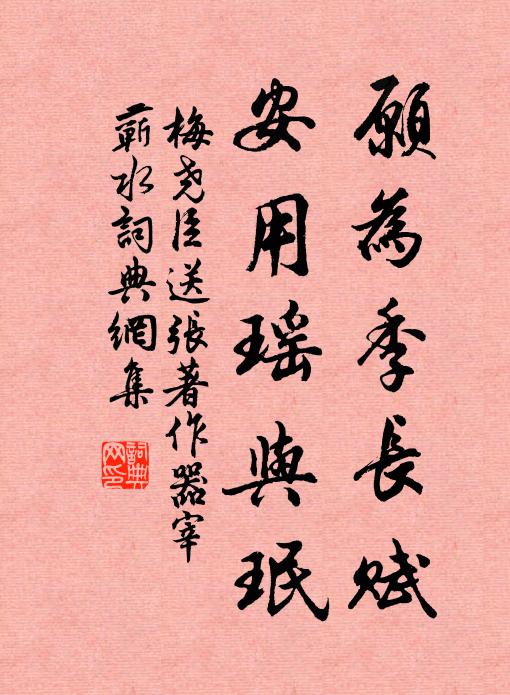 願為季長賦
安用瑶與珉
梅尧臣送張著作器宰
蘄水詞典網集
詞典
网印